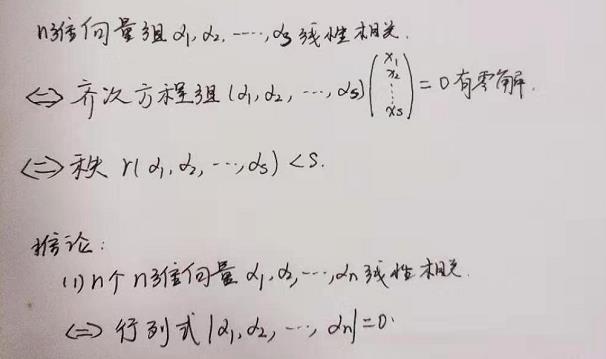 n维向量组 α₁, α₂, ⋯, αs 线性相关.
⟺ 齐次方程组 (α₁, α₂, ⋯, αs) (x₁ x₂ ⋮ xs) = 0 有零解.
⟺ 秩 r(α₁, α₂, ⋯, αs) < s.
推论:
(1) n个n维向量 α₁, α₂, ⋯, αn 线性相关.
⟺ 行列式 |α₁, α₂, ⋯, αn| = 0.